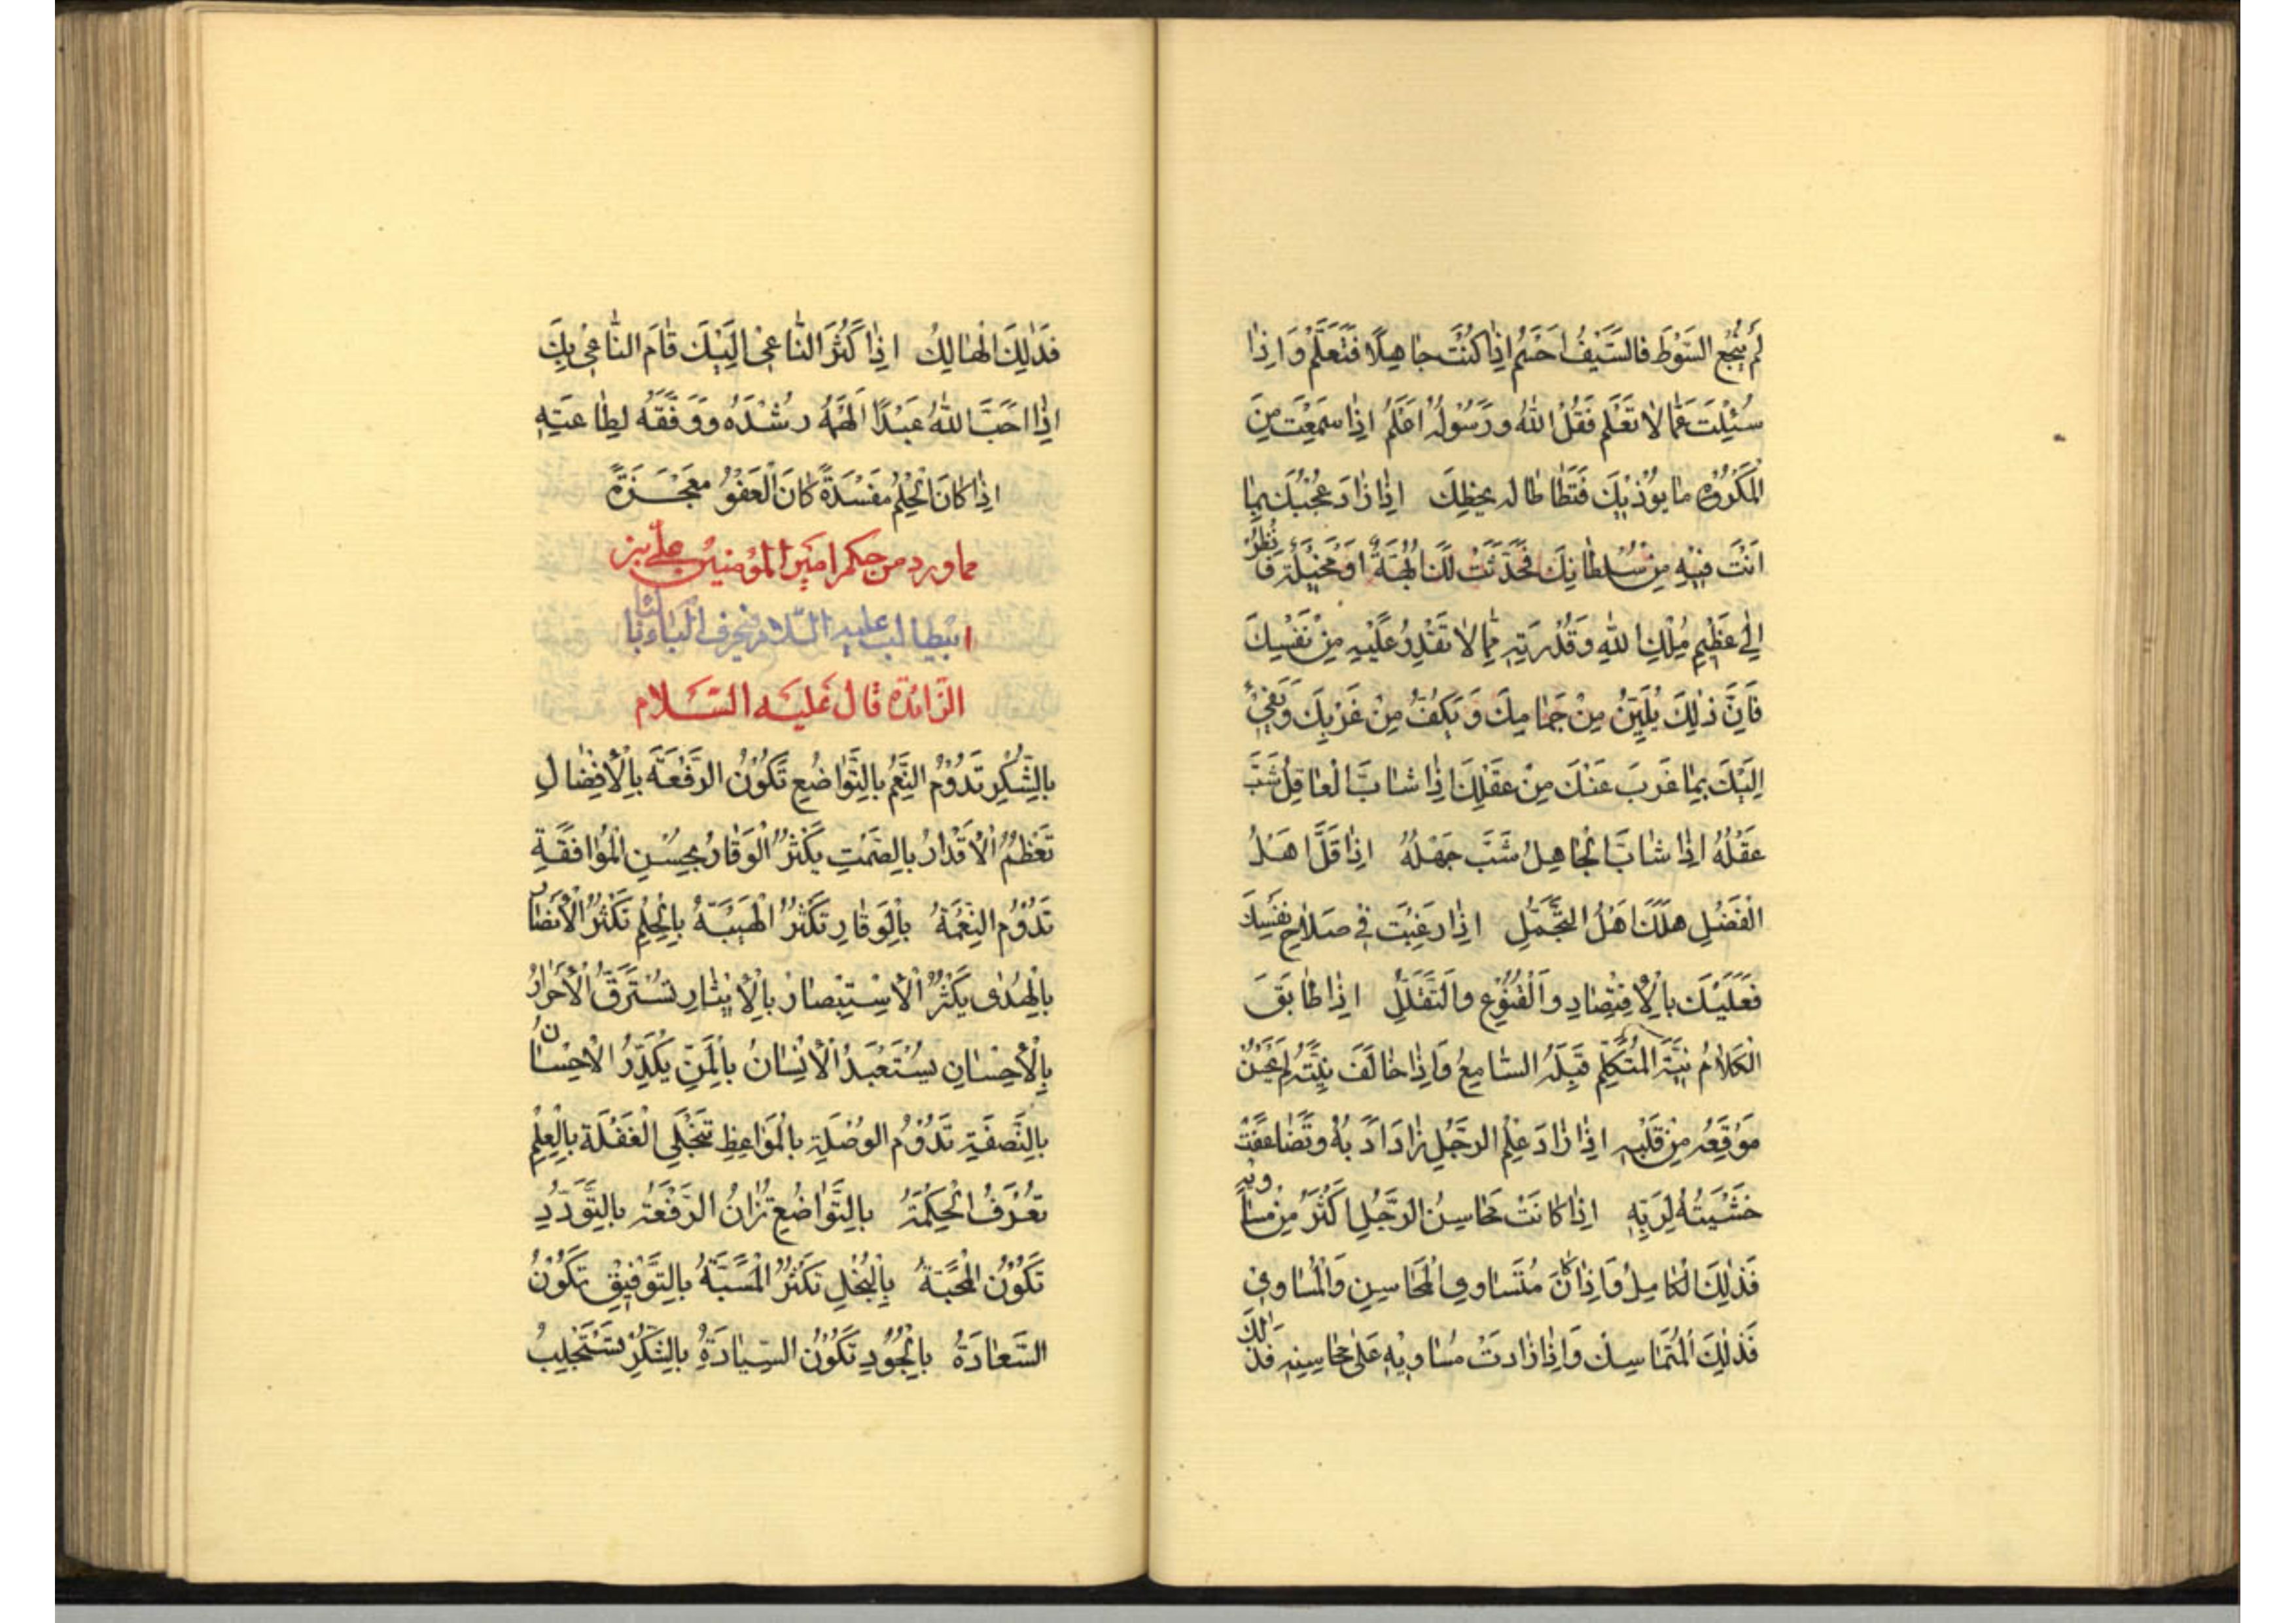 لَمْ يَنْجَعِ السَّوْطَ فَالسَّيْفُ اَحْسَمُ اِذَا كُنْتَ جَاهِلًا فَتَعَلَّمْ وَاِذَا
سُئِلْتَ عَمَّا لَا تَعْلَم فَقُلْ اَللهُ وَرَسُولُهُ اَعْلَمُ اِذَا سَمِعْتَ مِنَ
الْمَكْرُوهِ مَا يُوْذِيْكَ فَتَطَاْطَا لَه يُخْطِكَ اِذَا زَادَ عُجْبُكَ بِمَا
اَنْتَ فِيْهِ مِنْ سُلْطَانِكَ فَحَدَثَتْ لَكَ اُبَّهَةٌ اَوْ مَخِيْلَةٌ فَانْظُرْ
اِلَى عَظِيْمِ مُلْكِ اللهِ وَقُدْرَتِهِ مِمَّا لَا تَقْدِرُ عَلَيْهِ مِنْ نَفْسِكَ
فَاِنَّ ذٰلِكَ يُلَيِّنُ مِنْ جِمَاحِكَ وَيَكُفُّ مِنْ غَرْبِكَ وَيَفِيْءُ
اِلَيْكَ بِمَا عَزَبَ عَنْكَ مِنْ عَقْلِكَ اِذَا شَابَ الْعَاقِلُ شَبَّ
عَقْلُهُ اِذَا شَابَ الْجَاهِلُ شَبَّ جَهْلُهُ اِذَا قَلَّ اَهْلُ
الْفَضْلِ هَلَكَ اَهْلُ التَّجَمُّلِ اِذَا رَغِبْتَ فِي صَلَاحِ نَفْسِكَ
فَعَلَيْكَ بِالْاِقْتِصَادِ وَالْقُنُوْعِ وَالتَّقَلُّلِ اِذَا طَابَقَ
الْكَلَامُ نِيَّةَ الْمُتَكَلِّمِ قَبِلَهُ السَّامِعُ وَاِذَا خَالَفَ نِيَّتَهُ لَمْ يَحْسُنْ
مَوْقِعُهُ مِنْ قَلْبِهِ اِذَا زَادَ عِلْمُ الرَّجُلِ زَادَ اَدَبُهُ وَتَضَاعَفَتْ
خَشْيَتُهُ لِرَبِّهِ اِذَا كَانَتْ مَحَاسِنُ الرَّجُلِ اَكْثَرَ مِنْ مَسَاوِيْهِ
فَذٰلِكَ الْكَامِلُ وَاِذَا كَانَ مُتَسَاوِي الْمَحَاسِنِ وَالْمَسَاوِيْ
فَذٰلِكَ الْمُتَمَاسِكُ وَاِذَا زَادَتْ مَسَاوِيْهِ عَلَى مَحَاسِنِهِ فَذٰلِكَ
فَذٰلِكَ الْهَالِكُ اِذَا كَثُرَ النَّاعِيْ اِلَيْكَ قَامَ النَّاعِيْ بِكَ
اِذَا اَحَبَّ اللهُ عَبْدًا اَلْهَمَهُ رُشْدَهُ وَوَفَّقَهُ لِطَاعَتِهِ
اِذَا كَانَ الْحِلْمُ مَفْسَدَةً كَانَ الْعَفْوُ مَعْجَزَةً
مما ورد من حكم امير المؤمنين علي بن
ابيطالب عليه السلام في حرف الباء بالباء
الزائدة قال عليه السلام
بِالشُّكْرِ تَدُوْمُ النِّعَمُ بِالتَّوَاضُعِ تَكُوْنُ الرَّفْعَةُ بِالْاِفْضَالِ
تَعْظُمُ الْاَقْدَارُ بِالصَّمْتِ يَكْثُرُ الْوَقَارُ بِحُسْنِ الْمُوَافَقَةِ
تَدُوْمُ النِّعْمَةُ بِالْوَقَارِ تَكْثُرُ الْهَيْبَةُ بِالْحِلْمِ تَكْثُرُ الْاَنْصَارُ
بِالْهُدٰى يَكْثُرُ الْاِسْتِبْصَارُ بِالْاِيْثَارِ تَسْتَرِقُّ الْاَحْرَارُ
بِالْاِحْسَانِ يُسْتَعْبَدُ الْاِنْسَانُ بِالْمَنِّ يُكَدَّرُ الْاِحْسَانُ
بِالنَّصَفَةِ تَدُوْمُ الْوُصْلَةِ بِالْمَوَاعِظِ تَنْجَلِي الْغَفْلَةُ بِالْعِلْمِ
تُعْرَفُ الْحِكْمَةُ بِالتَّوَاضُعِ تُزَانُ الرَّفْعَةُ بِالتَّوَدُّدِ
تَكُوْنُ الْمَحَبَّةُ بِالْبُخْلِ تَكْثُرُ الْمَسَبَّةُ بِالتَّوْفِيْقِ تَكُوْنُ
السَّعَادَةُ بِالْجُوْدِ تَكُوْنُ السِّيَادَةُ بِالشُّكْرِ تَسْتَجْلِبُ